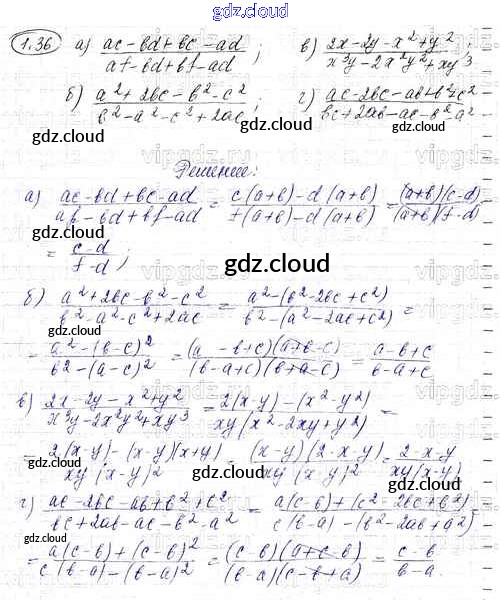 gdz.cloud
1.36 а) (ac - bd + bc - ad)/(af - bd + bf - ad); в) (2x - 2y - x² + y²)/(x³y - 2x²y² + xy³);
б) (a² + 2bc - b² - c²)/(b² - a² - c² + 2ac); г) (ac - 2bc - ab + b² + c²)/(bc + 2ab - ac - b² - a²)
gdz.cloud gdz.cloud
Решение:
а) (ac - bd + bc - ad)/(af - bd + bf - ad) = (c(a+b) - d(a+b))/(f(a+b) - d(a+b)) = ((a+b)(c-d))/((a+b)(f-d))
= (c-d)/(f-d);
gdz.cloud
б) (a² + 2bc - b² - c²)/(b² - a² - c² + 2ac) = (a² - (b² - 2bc + c²))/(b² - (a² - 2ac + c²)) =
= (a² - (b-c)²)/(b² - (a-c)²) = ((a - b + c)(a + b - c))/((b - a + c)(b + a - c)) = (a - b + c)/(b - a + c)
gdz.cloud gdz.cloud
в) (2x - 2y - x² + y²)/(x³y - 2x²y² + xy³) = (2(x-y) - (x² - y²))/(xy(x² - 2xy + y²)) =
= (2(x-y) - (x-y)(x+y))/(xy(x-y)²) = ((x-y)(2-x-y))/(xy(x-y)²) = (2-x-y)/(xy(x-y))
gdz.cloud
г) (ac - 2bc - ab + b² + c²)/(bc + 2ab - ac - b² - a²) = (a(c-b) + (c² - 2bc + b²))/(c(b-a) - (b² - 2ab + a²)) =
= (a(c-b) + (c-b)²)/(c(b-a) - (b-a)²) = ((c-b)(a+c-b))/((b-a)(c-b+a)) = (c-b)/(b-a).
gdz.cloud gdz.cloud